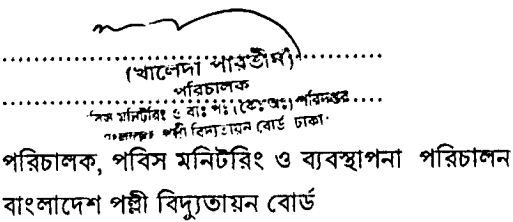 (খালেদা পারভীন)
পরিচালক
মনিটরিং ও ব্যঃ পঃ (কেঃঅঃ) পরিদপ্তর
পল্লী বিদ্যুতায়ন বোর্ড ঢাকা
পরিচালক, পবিস মনিটরিং ও ব্যবস্থাপনা পরিচালন
বাংলাদেশ পল্লী বিদ্যুতায়ন বোর্ড